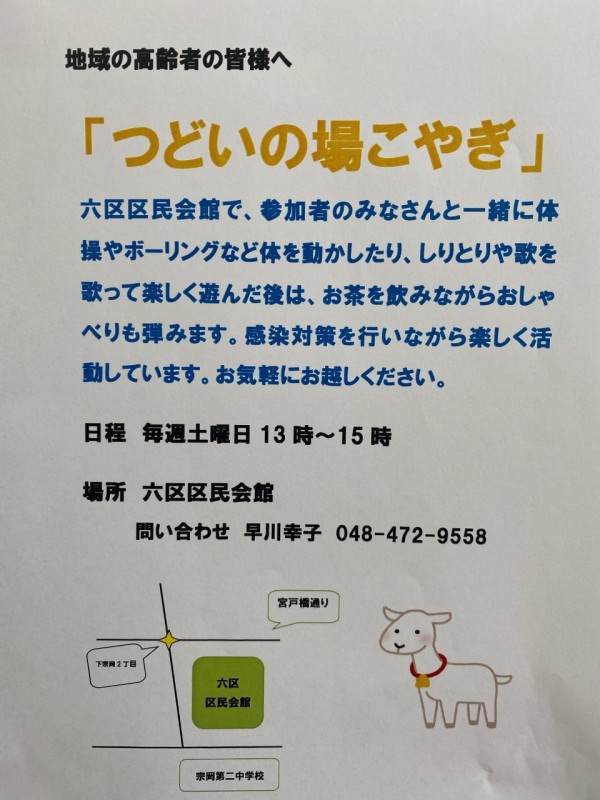 地域の高齢者の皆様へ
「つどいの場こやぎ」
六区区民会館で、参加者のみなさんと一緒に体
操やボーリングなど体を動かしたり、しりとりや歌を
歌って楽しく遊んだ後は、お茶を飲みながらおしゃ
べりも弾みます。感染対策を行いながら楽しく活
動しています。お気軽にお越しください。
日程 毎週土曜日13時～15時
場所 六区区民会館
問い合わせ 早川幸子 048-472-9558
宮戸橋通り
下宗岡2丁目
六区
区民会館
宗岡第二中学校